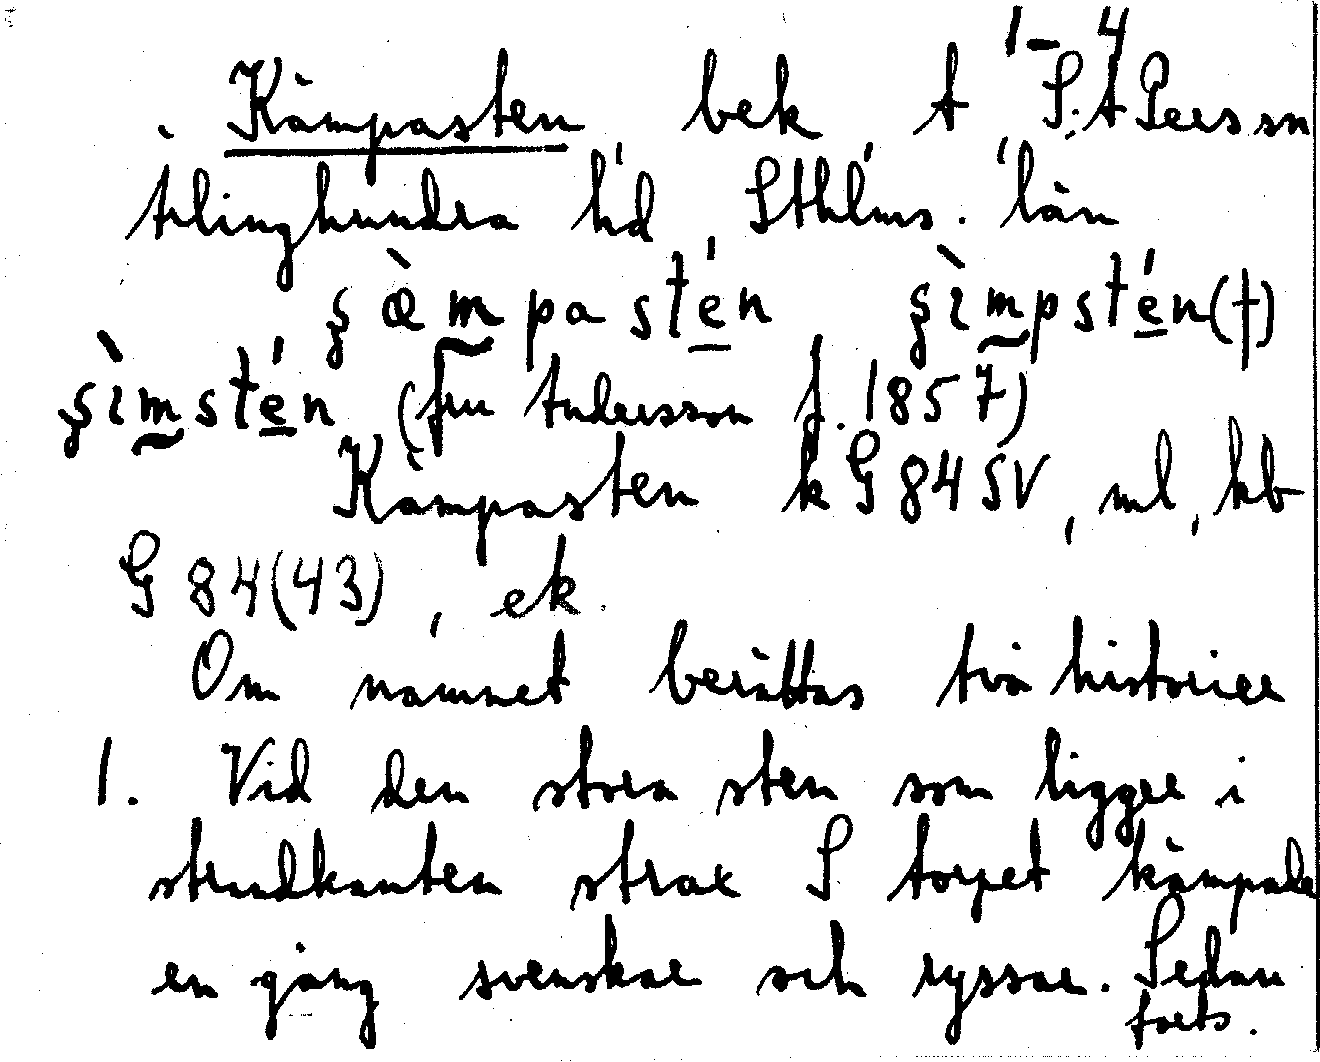 1-4
Kämpasten, bek t S:t Pers sn
ärlinghundra hd, Sthlms. län
ʂæ̀mpasté̱n ʂìmpsté̱n(†)
ʂìmsté̱n (fru Andersson f. 1857)
Kämpasten k G 84 SV, ml, hb
G 84(43), ek.
Om namnet berättas två historier
1. Vid den stora sten som ligger i
strandkanten strax S torpet kämpade
en gång svenskar och ryssar. Sedan
forts.